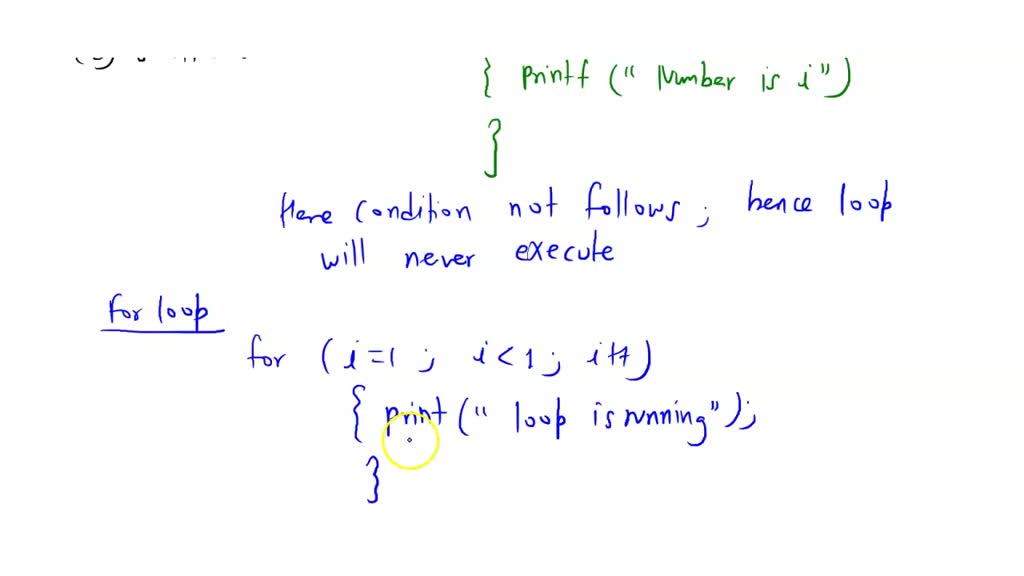 { printf (" Number is i")
}
Here condition not follows ; hence loop
will never execute
For loop
for (i=1 ; i<1; i++)
{ print (" loop is running");
}